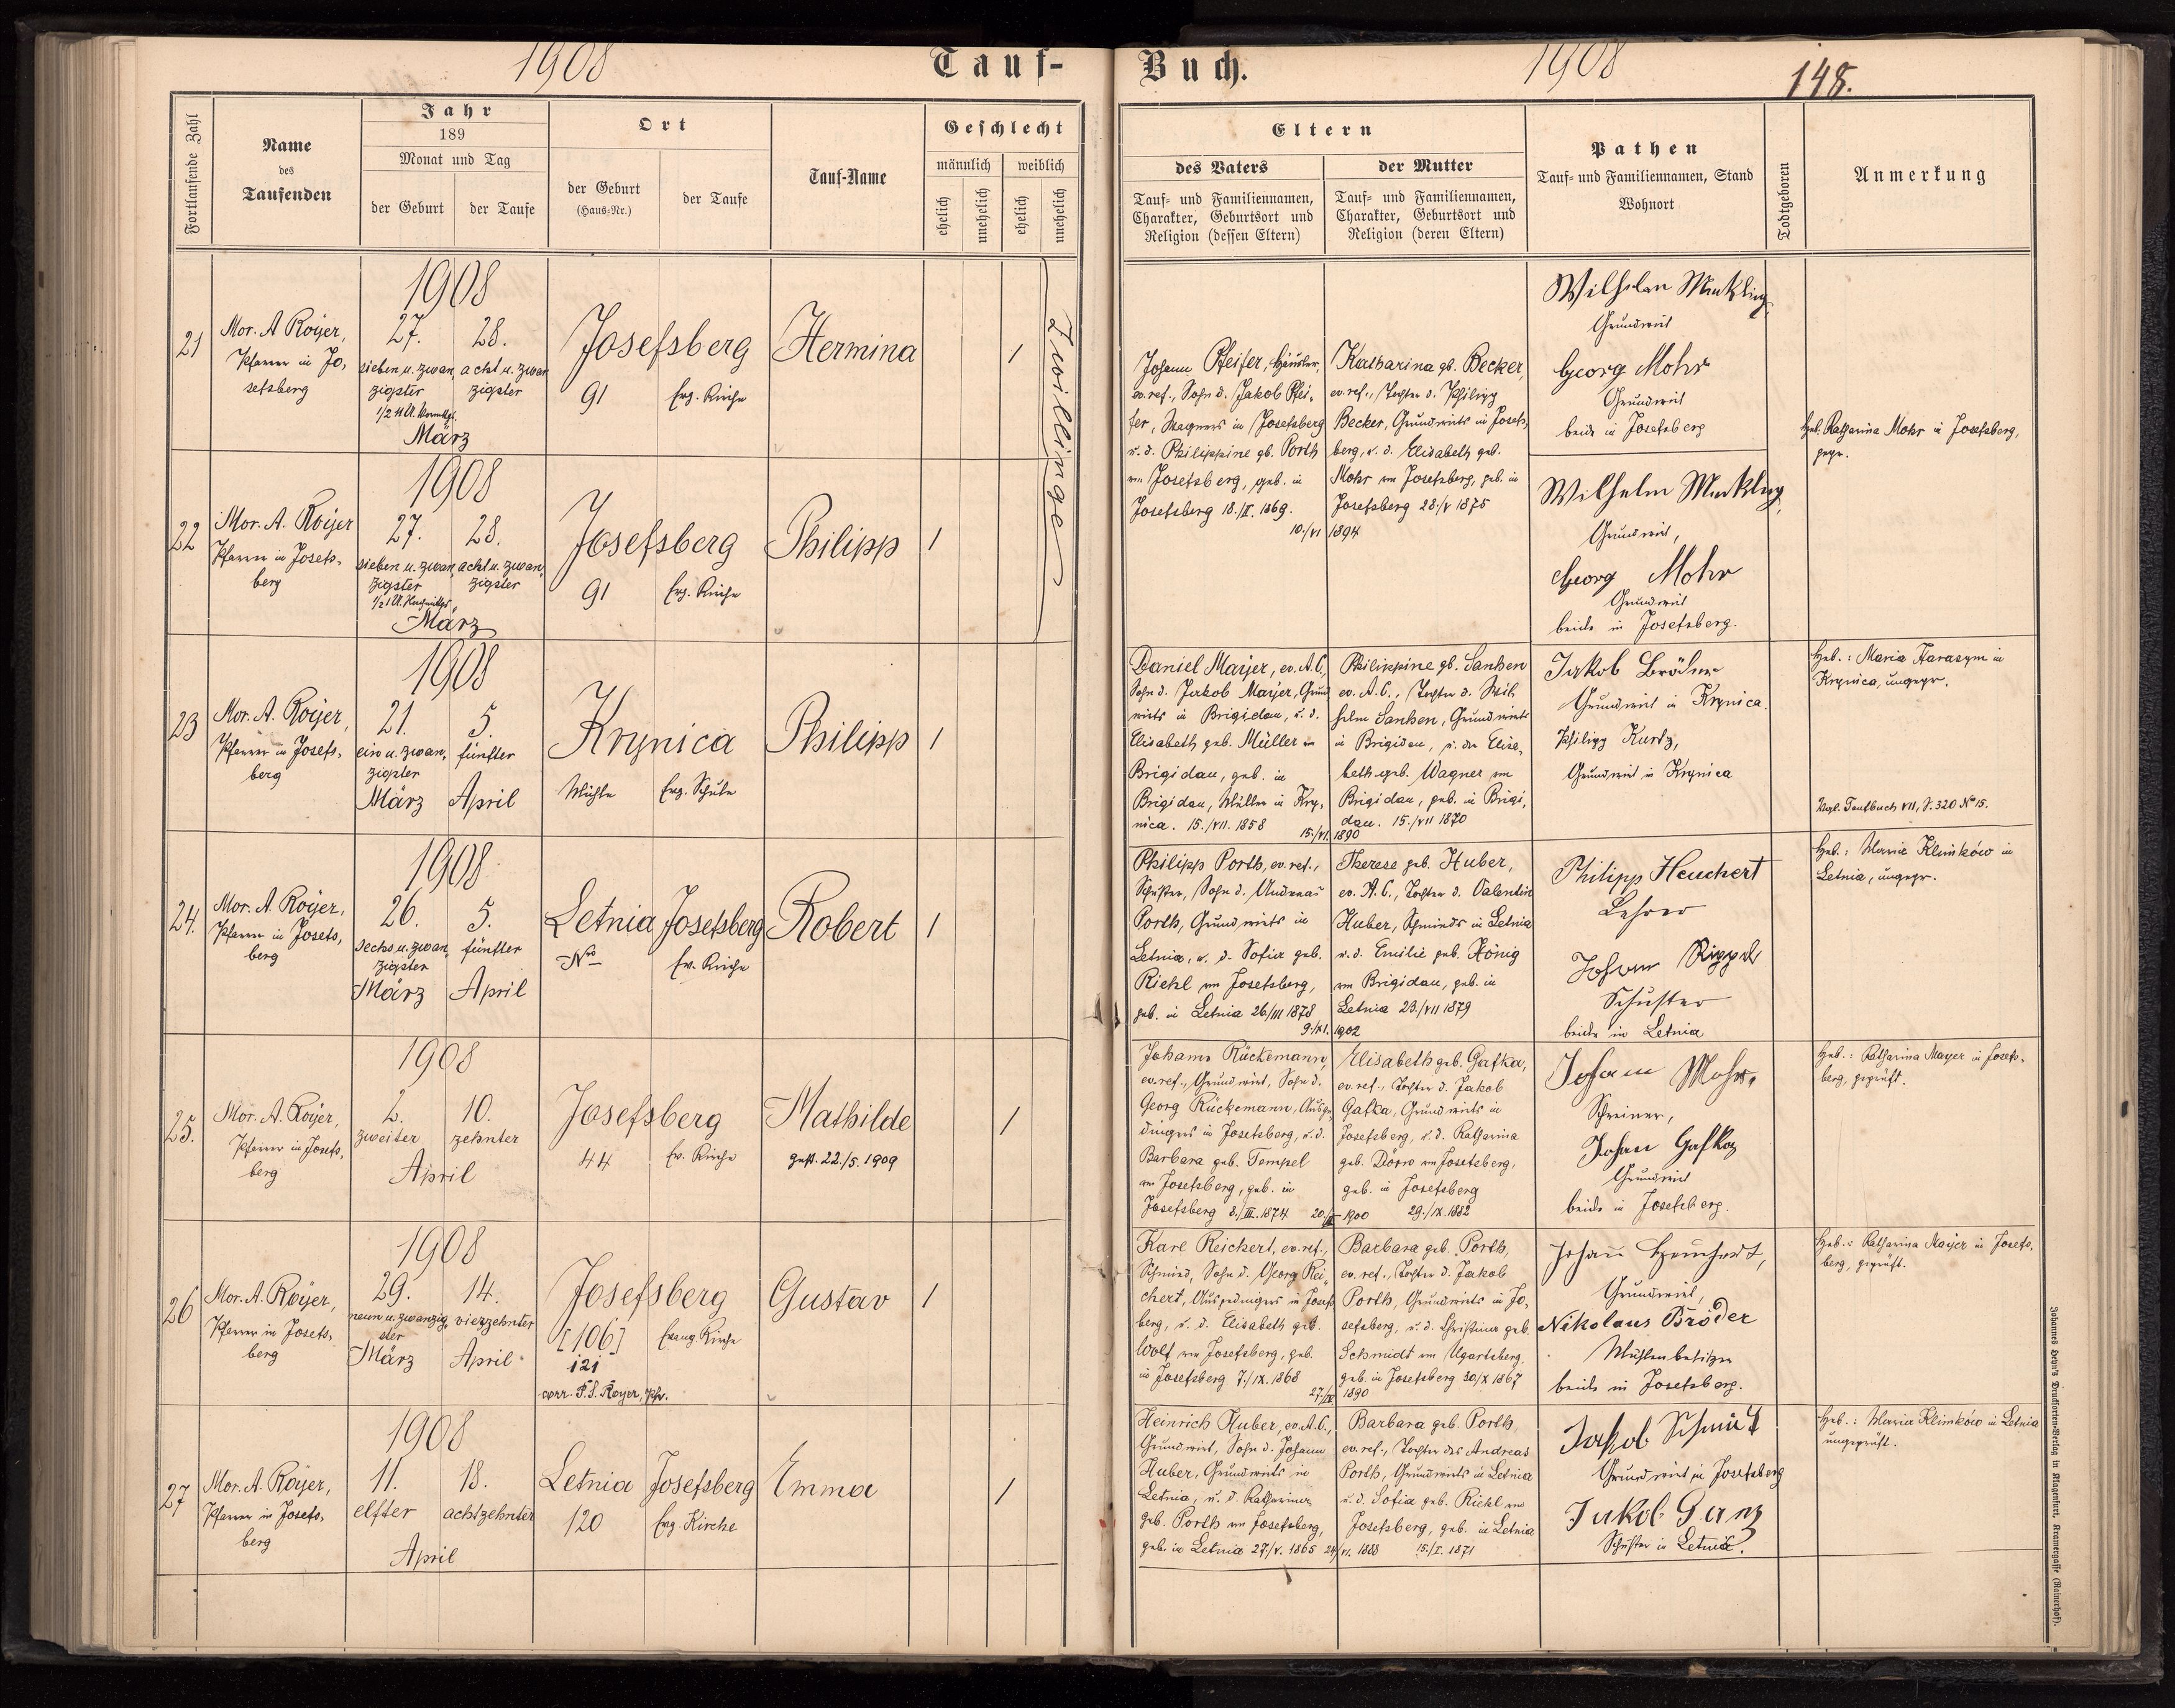 1908
Tauf-
Buch.
1908
148.
Fortlaufende Zahl
Name
des
Taufenden
Jahr
189
Monat und Tag
der Geburt
der Taufe
Ort
der Geburt
(Haus-Nr.)
der Taufe
Tauf-Name
Geschlecht
männlich
weiblich
ehelich
unehelich
ehelich
unehelich
Eltern
des Vaters
Tauf- und Familiennamen,
Charakter, Geburtsort und
Religion (dessen Eltern)
der Mutter
Tauf- und Familiennamen,
Charakter, Geburtsort und
Religion (deren Eltern)
Pathen
Tauf- und Familiennamen, Stand
Wohnort
Todtgeboren
Anmerkung
21
Mor. A Royer,
Pfarrer in Jo,
sefsberg
1908
27.
sieben u. zwan,
zigster
28.
acht u. zwan
zigster
März
Josefsberg
91
Evg. Kirche
Hermina
1
Zwillinge
Johann Pfeifer, Häusler,
ev. ref., Sohn d. Jakob Pfei-
fer, Wagners in Josefsberg
u. d. Philippine gb. Porth
von Josefsberg, geb. in
Josefsberg 18./II. 1869.
Katharina gb. Becker,
ev. ref., Tochter d. Philipp
Becker, Grundwirts in Josefs,
berg, u. d. Elisabeth geb.
Mohr von Josefsberg, geb. in
Josefsberg 28./V 1875
10./VI 1894
Wilhelm Merkling,
Grundwirt
Georg Mohr
Grundwirt
beide in Josefsberg
Heb. Katharina Mohr in Josefsberg,
gepr.
22
Mor. A. Royer
Pfarrer in Josefs-
berg
1908
27.
sieben u. zwan,
zigster
1/2 1 U. Nachmittgs.
28.
acht u. zwan,
zigster
März
Josefsberg
91
Evg. Kirche
Philipp
1
Wilhelm Merkling,
Grundwirt,
Georg Mohr
Grundwirt
beide in Josefsberg.
23
Mor. A. Royer,
Pfarrer in Josefs-
berg
1908
21.
ein u. zwan,
zigster
März
5.
fünfter
April
Krynica
Mühle
Evg. Schule
Philipp
1
Daniel Mayer, ev. A.C.,
Sohn d. Jakob Mayer, Grund
wirts in Brigidau, u. d.
Elisabeth geb. Müller von
Brigidau, geb. in
Brigidau, Müller in Kry,
nica. 15./VII. 1858
Philippine gb. Sanken
ev. A.C., Tochter d. Wil
helm Sanken, Grundwirts
in Brigidau, u. der Elise,
beth geb. Wagner von
Brigidau, geb. in Brigi,
dau. 15./VII 1870
15./VI. 1890
Jakob Bröder
Grundwirt in Krynica.
Philipp Kurtz,
Grundwirt in Krynica
Heb.: Maria Harasym in
Krynica, ungepr.
Vergl. Taufbuch VII, S. 320 No 15.
24.
Mor. A. Royer,
Pfarrer in Josefs,
berg
1908
26.
sechs u. zwan,
zigster
März
5.
fünfter
April
Letnia
Josefsberg
Ev. Kirche
Robert
1
Philipp Porth, ev. ref.,
Schuster, Sohn d. Andreas
Porth, Grundwirts in
Letnia, u. d. Sofia geb.
Riehl von Josefsberg,
geb. in Letnia 26/III 1878
Therese geb. Huber,
ev. A.C., Tochter d. Valentin
Huber, Schmieds in Letnia
u. d. Emilie geb. König
von Brigidau, geb. in
Letnia 23./VII 1879
9./XI. 1902
Philipp Heuchert
Lehrer
Johann Rippel
Schuster
beide in Letnia
Heb.: Maria Klimków in
Letnia, ungepr.
25.
Mor. A. Royer,
Pfarrer in Josefs,
berg
1908
2.
zweiter
10.
zehnter
April
Josefsberg
44
Ev. Kirche
Mathilde
gest. 22./5. 1909
1
Johann Rückemann,
ev. ref., Grundwirt, Sohn d.
Georg Rückemann, Ausge,
dingers in Josefsberg, u. d.
Barbara geb. Tempel
von Josefsberg, geb. in
Josefsberg 8./III. 1874
Elisabeth geb. Gafka,
ev. ref., Tochter d. Jakob
Gafka, Grundwirts in
Josefsberg, u. d. Katharina
geb. Dörr von Josefsberg,
geb. in Josefsberg
29./IX. 1882
1900
Johann Mohr,
Schreiner,
Johan Gafka
Grundwirt
beide in Josefsberg.
Heb.: Katharina Mayer in Josefs-
berg, geprüft.
26
Mor. A. Royer,
Pfarrer in Josefs-
berg
1908
29.
neun u. zwanzig,
ster
März
14.
vierzehnter
April
Josefsberg
[106]
121
Evang. Kirche
corr. F. S. Royer, Pfr.
Gustav
1
Karl Reichert, ev. ref.,
Schmied, Sohn d. Georg Rei,
chert, Ausgedingers in Josefs
berg, u. d. Elisabeth geb.
Wolf von Josefsberg, geb.
in Josefsberg 7./IX. 1868
Barbara geb. Porth,
ev. ref., Tochter d. Jakob
Porth, Grundwirts in Jo,
sefsberg, u. d. Christina geb.
Schmidt von Ugartsberg,
geb. in Josefsberg 30/X 1867
1890
Johann Heuchert,
Grundwirt,
Nikolaus Bröder
Mühlenbesitzer
beide in Josefsberg.
Heb.: Katharina Mayer in Josefs,
berg, geprüft.
27
Mor. A. Royer,
Pfarrer in Josefs,
berg
1908
11.
elfter
18.
achtzehnter
April
Letnia
120
Josefsberg
Evg. Kirche
Emma
1
Heinrich Huber, ev. A.C.,
Grundwirt, Sohn d. Johann
Huber, Grundwirts in
Letnia, u. d. Katharina
geb. Porth von Josefsberg,
geb. in Letnia 27./V. 1865
Barbara geb. Porth,
ev. ref., Tochter des Andreas
Porth, Grundwirts in Letnia
u. d. Sofia geb. Riehl von
Josefsberg, geb. in Letnia
15./I. 1871
24/VI. 1888
Jakob Schmidt
Grundwirt in Josefsberg
Jakob Ganz
Schuster in Letnia.
Heb.: Maria Klimków in Letnia
ungeprüft.
Johannes Heyn's Drucksorten-Verlag in Klagenfurt, Kramergasse (Rainerhof).